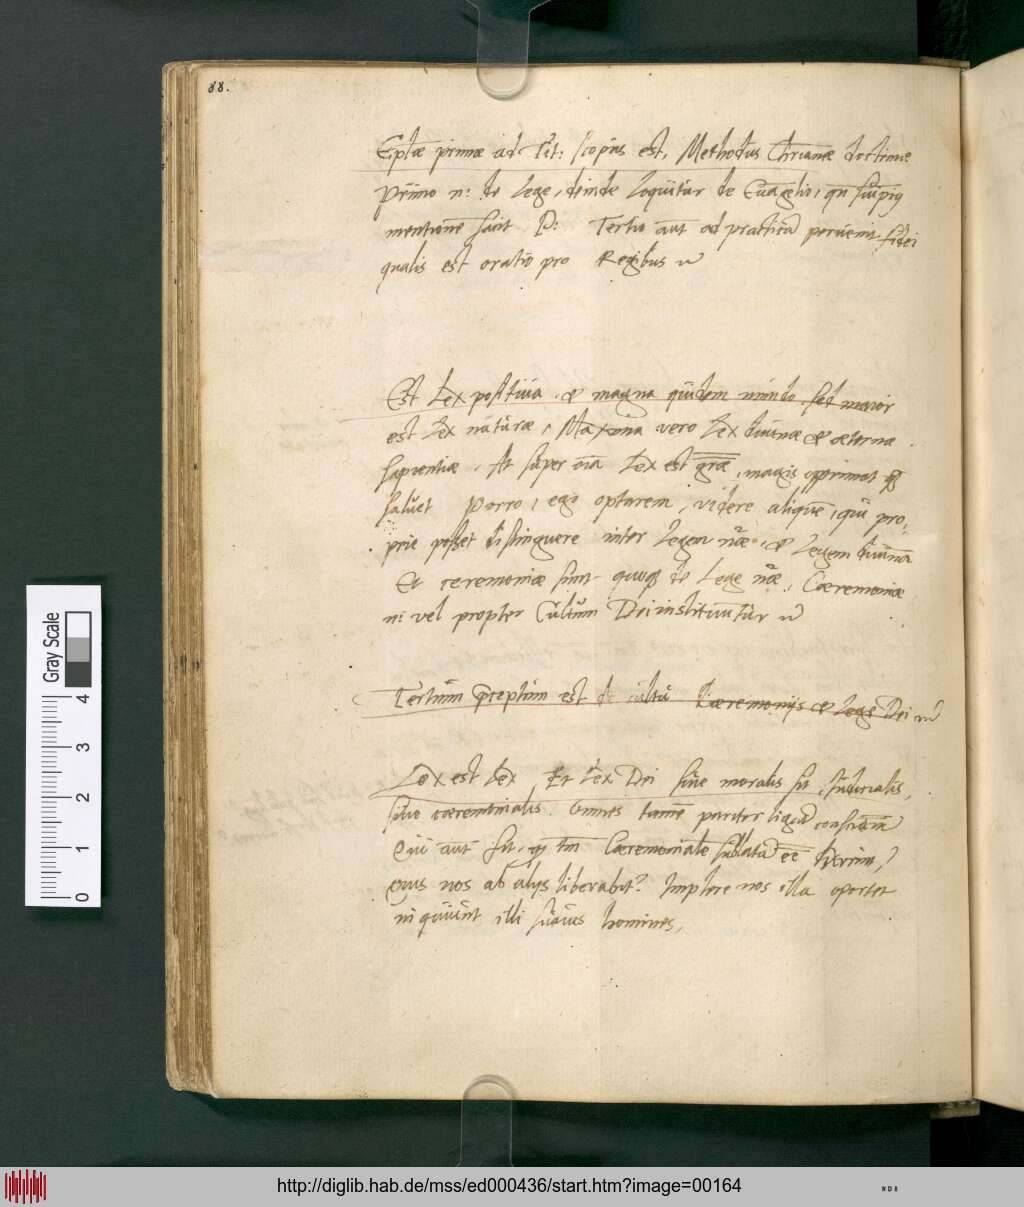 88.
Eplae primae ad Tit: scopus est, Methodus Chrianae doctrinae
primo n: de Lege, deinde loquitur de Euāgelio, qn
mentionē facit P: Tertio aut ad practicā peruenit fidei
qualis est oratio pro Regibus
Est Lex positiua, & magna quidem mundo. sed maior
est Lex naturae, Maxima vero Lex diuinae & aeternae
sapientiae. At super oīa Lex est grāe, magis opprimat
saluet Porro, ego optarem, videre aliquē, qui pro,
prie posset distinguere inter Legem nāe, & Legem diuinā
Et ceremoniae sunt quoq de Lege nāe, Caeremoniae
n: vel propter Cultum Dei instituuntur
Tertium pceptum est de cultu Caeremonijs & Lege Dei
Lex est Lex Et Lex Dei siue moralis sit, siue iudicialis,
siue caeremonialis. Omnes tamē pariter ligāt conscientiā
Qui aut fit, q tm Caeremoniale sublatū eē
Quis nos ab alijs liberabit? Implere nos illa oportet
inquiunt illi suaues homines,
Gray Scale
0 1 2 3 4
http://diglib.hab.de/mss/ed000436/start.htm?image=00164